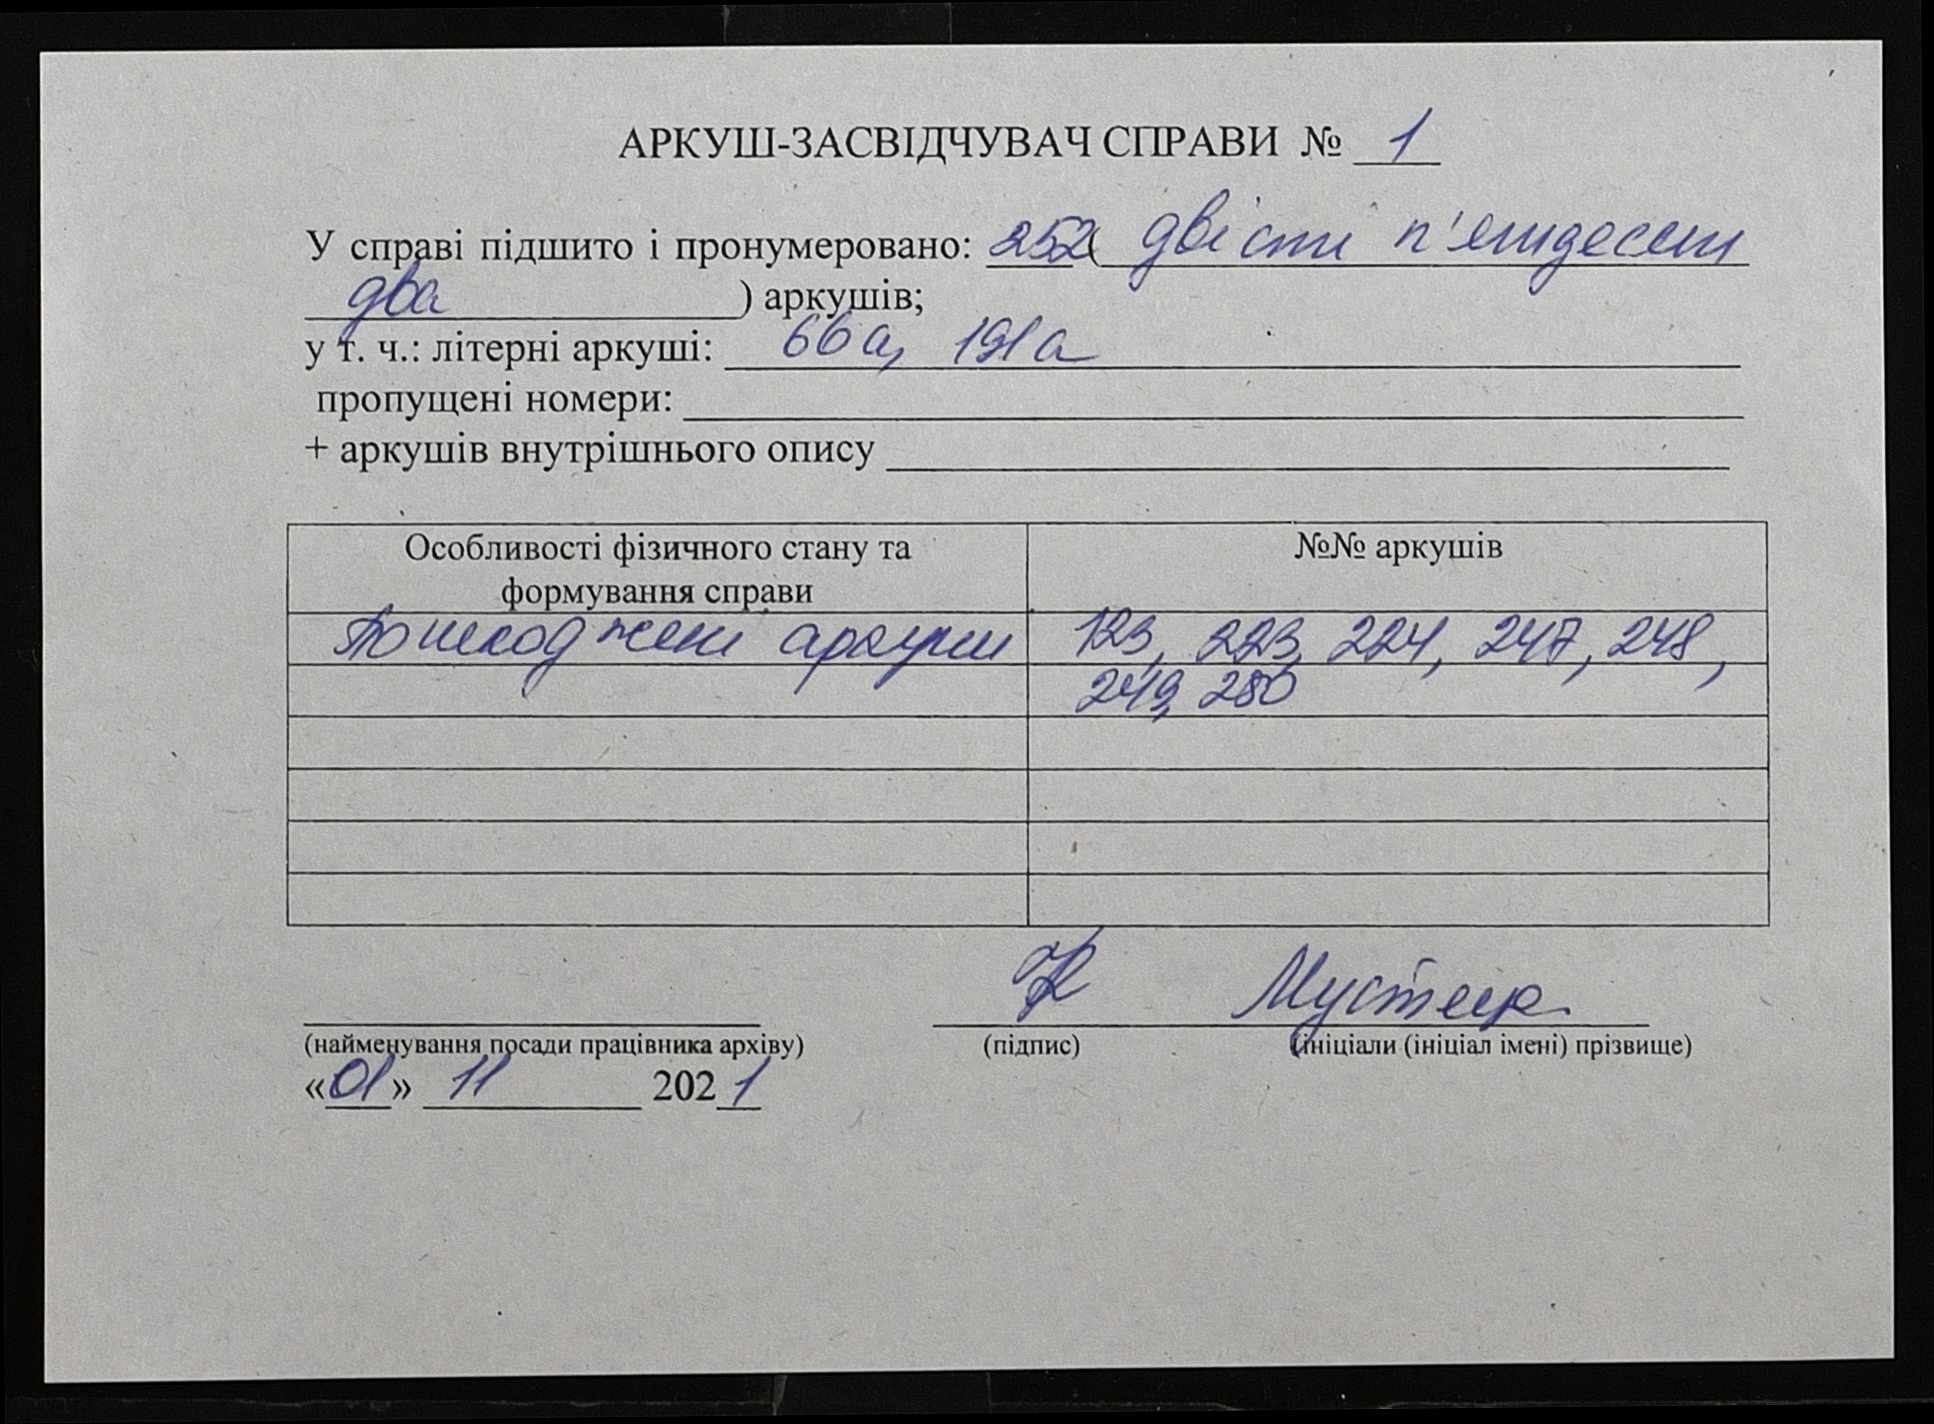 АРКУШ-ЗАСВІДЧУВАЧ СПРАВИ № 1
У справі підшито і пронумеровано: 252 ( двісті п'ятдесят
два ) аркушів;
у т. ч.: літерні аркуші: 66а, 191а
пропущені номери:
+ аркушів внутрішнього опису
Особливості фізичного стану та
формування справи
№№ аркушів
Пошкоджені аркуші 123, 223, 224, 247, 248,
249, 250
(найменування посади працівника архіву) (підпис) (ініціали (ініціал імені) прізвище)
«01» 11 2021